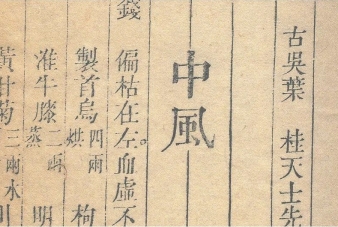 古吳葉　桂天士先
中風
偏枯在左。血虛不
製首烏四兩烘　枸
淮牛膝二兩蒸　明
黃甘菊三兩水
錢